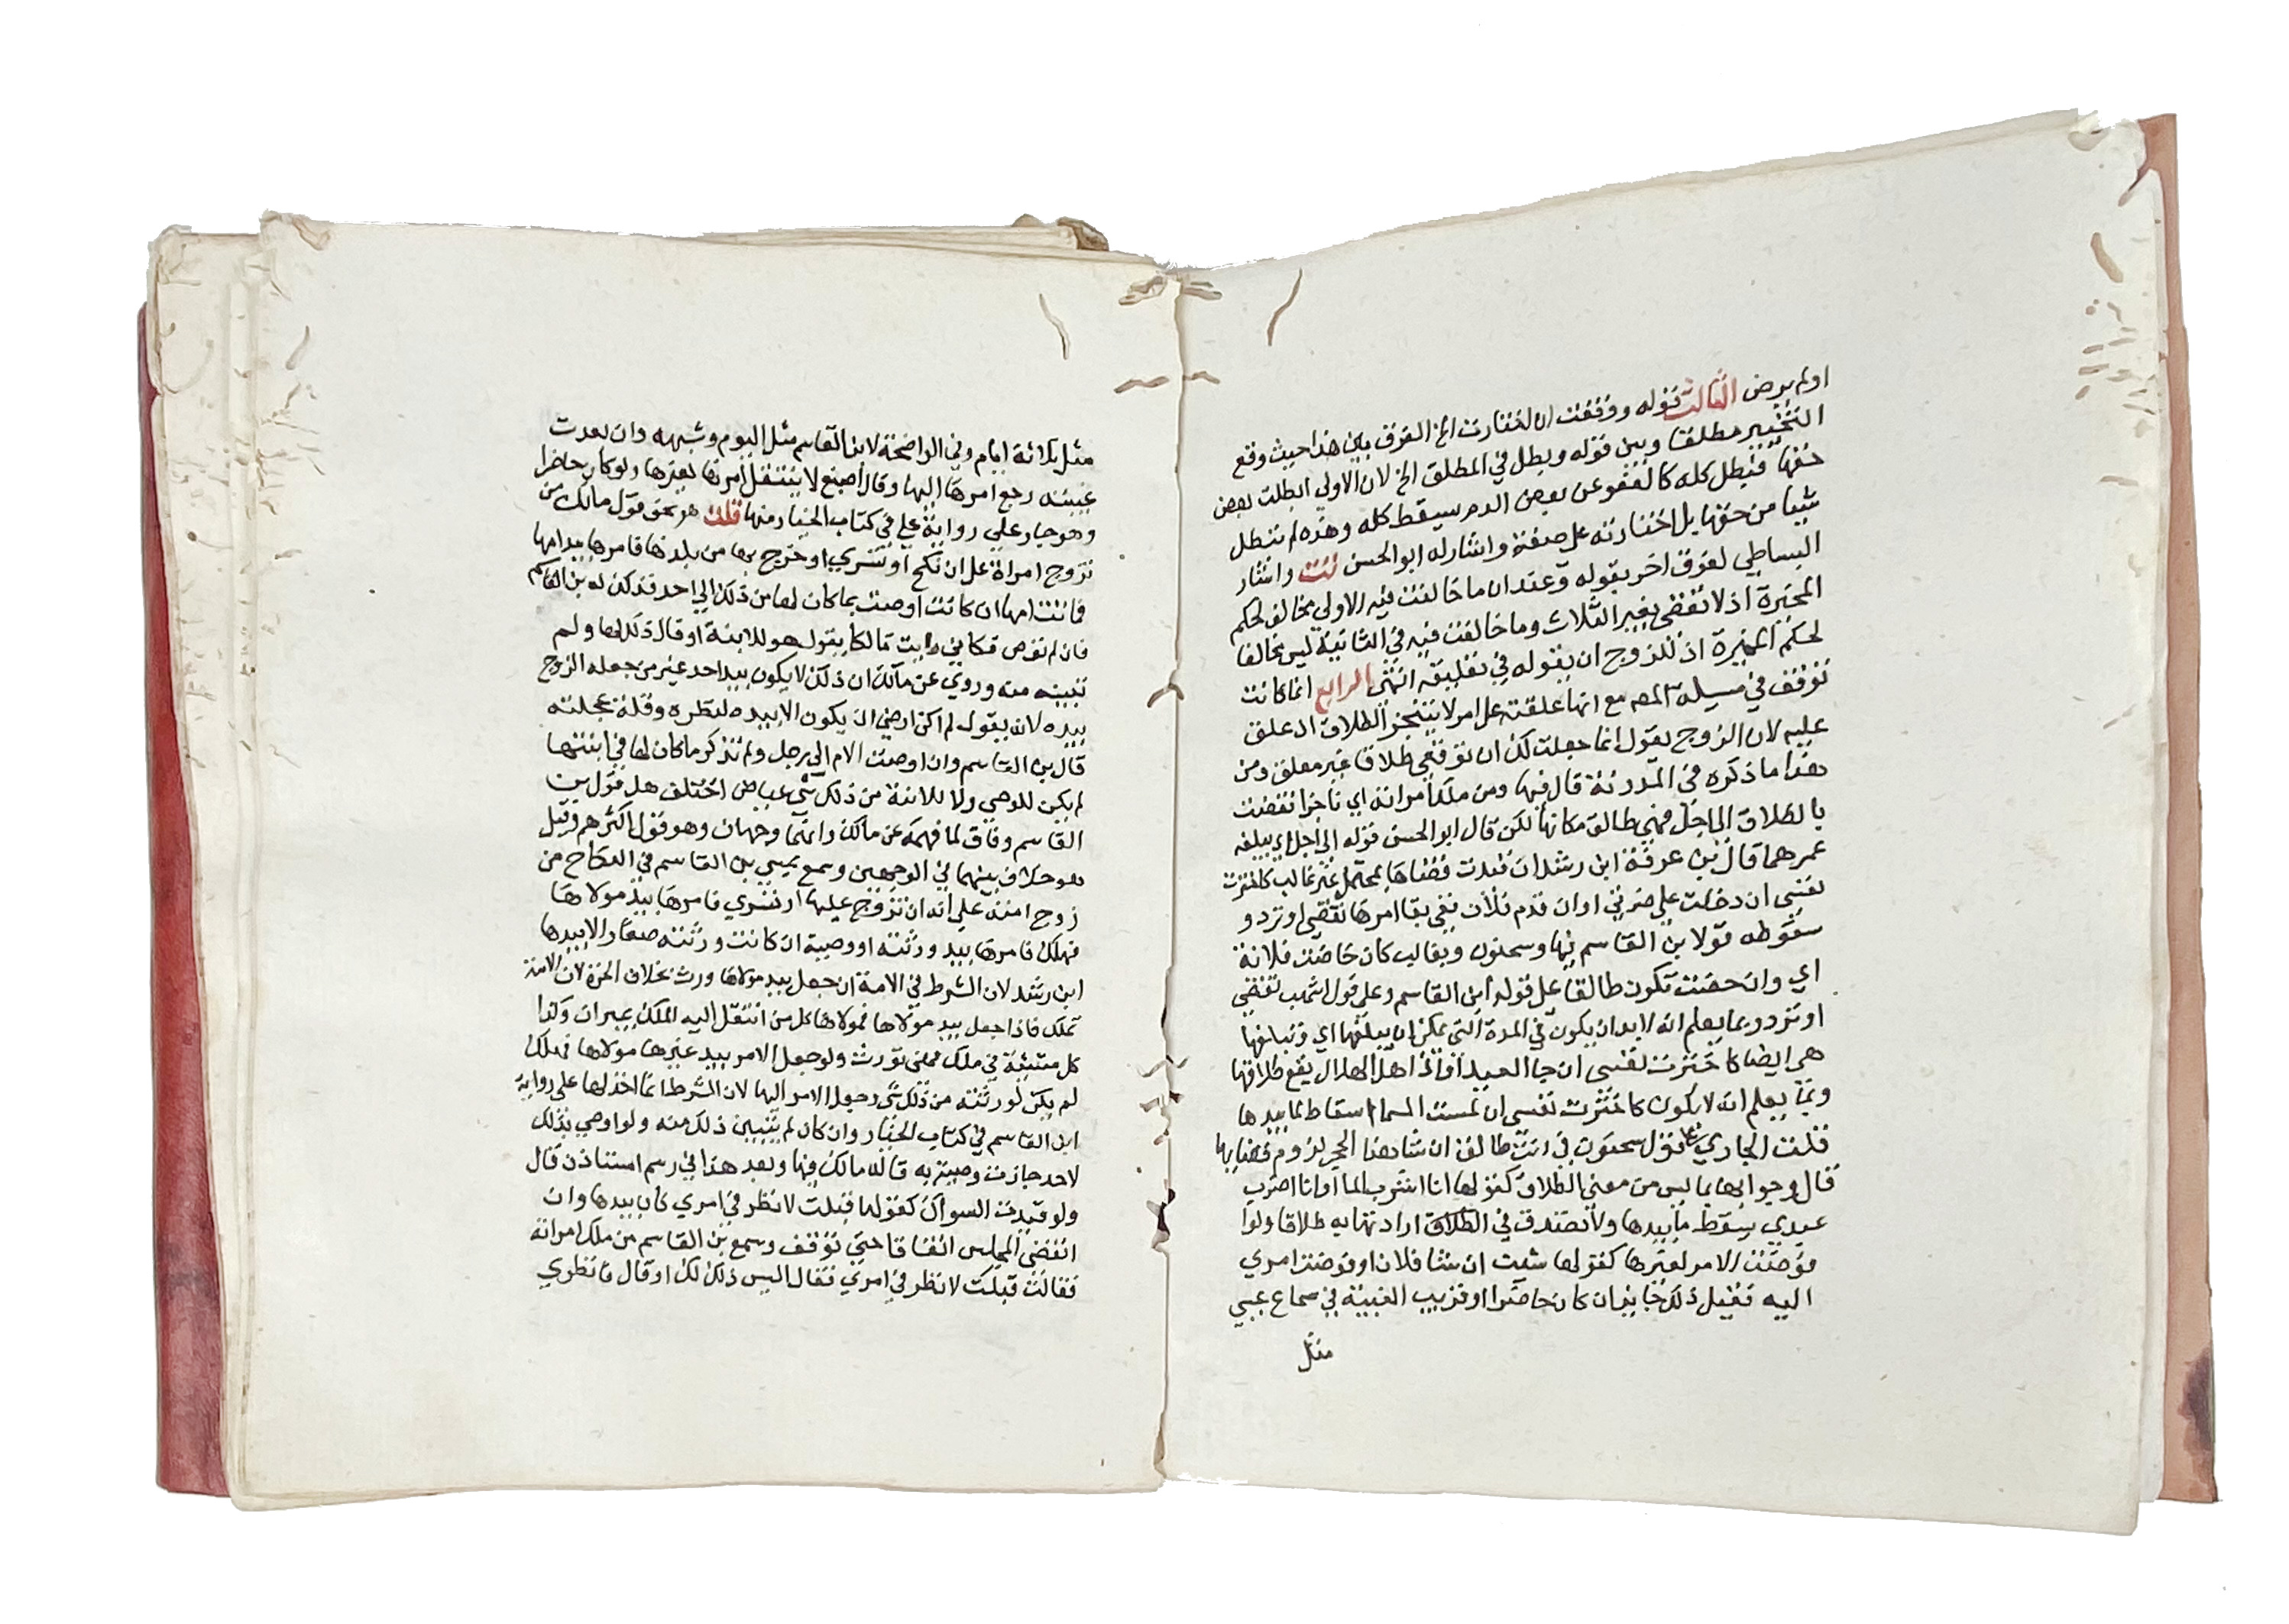 اولم يرض الثالث قوله ووقفت ان اختارت الخ الفرق بين هذا حيث وقع
التخيير مطلقا وبين قوله وبطل في المطلق الخ لان الاولي ابطلت بعض
حقها فبطل كله كالعفو عن بعض الدم سيقط كله وهذه لم تبطل
شيا من حقها بل اختارته على صفة واشار له ابو الحسن قلت واشار
البساطي لفرق اخر بقوله وعندان ما خالفت فيه الاولي مخالف لحكم
المخيرة اذ لا تقضي بغير الثلاث وما خالفت فيه في الثانية ليس مخالفا
لحكم المخيرة اذ للزوج ان يقوله في تعليقه انتهى الرابع انما كانت
توقف في مسيلة المصـ مع انها علقته على امر لا يتنجز الطلاق اذ علق
عليه لان الزوج يقول انما جعلت لك ان توقعي طلاقا غير معلق ومن
هذا ما ذكره في المدونة قال فيها ومن ملك امراته اي ناجزا فقضت
بالطلاق الي اجل فهي طالق مكانها لكن قال ابو الحسن قوله الي اجل اي يبلغه
عمرهما قال بن عرفة ابن رشد ان قيدت قضاها بمحتمل غير غالب كاخترت
نفسي ان دخلت علي ضرتي او ان قدم فلان ففي بقا امرها تقضي او ترد و
سقوطه قولا بن القاسم فيها وسحنون وبغالب كان حاضت فلانة
اي وان حضت تكون طالقا على قول ابن القاسم وعلي قول اشهب تقضي
او ترد وبما يعلم انه لابد ان يكون في المدة التي يمكن ان يبلغها اي وتبلغها
هي ايضا كاخترت نفسي ان جا العيد او اذا اهل الهلال يقع طلاقها
وبما يعلم انه لا يكون كاخترت نفسي ان لمست السما اسقاط لما بيدها
قلت الجاري علي قول سحنون في انت طالق ان شا هذا الحجر لزوم قضايها
قال وجوابها بما ليس من معني الطلاق كقولها انا اشرب الما او انا اضرب
عبدي يسقط ما بيدها ولا تصدق في الطلاق ارادتها به طلاقا ولو
فوضت الامر لغيرها كقولها شيت ان شا فلان او فوضت امري
اليه فقيل ذلك جايز ان كان حاضرا او قريب الغيبة في سماع عيسي
مثل
مثل ثلاثة ايام وفي الواضحة لابن القاسم مثل اليوم وشبهه وان بعدت
غيبته رجع امرها اليها وقال اصبغ لا ينتقل امرها لغيرها ولو كان حاضرا
وهو جار علي رواية علي في كتاب الخيار منها قلت هو نحو قول مالك من
تزوج امراة على ان نكح او تسري او خرج بها من بلدها فامرها بيد امها
فماتت امها ان كانت اوصت بما كان لها من ذلك الي احد فذلك له بن القاسم
فان لم توص فكاني رايت مالكا يقول هو للابنة او قال ذلك لها ولم
نتبينه منه وروي عن مالك ان ذلك لا يكون بيد احد غير من جعله الزوج
بيده لان يقول لم اكن ارضي ان يكون الا بيده لنظره وقلة عجلته
قال بن القاسم وان اوصت الام الي رجل ولم تذكر ما كان لها في ابنتها
لم يكن للوصي ولا للابنة من ذلك شي عياض اختلف هل قول بن
القاسم وفاق لما فهمه عن مالك وانهما وجهان وهو قول اكثرهم وقيل
هو خلاف بينهما في الوجهين وسمع يحيي بن القاسم في النكاح من
زوج امته علي انه ان تزوج عليها او تسري فامرها بيد مولاها
فهلك فامرها بيد ورثته او وصيه ان كانت ورثته صغارا لا بيدها
ابن رشد لان الشرط في الامة ان جعل بيد مولاها ورث بخلاف الحرة لان الامة
تملك فاذا جعل بيد مولاها فمولاها كل من انتقل اليه الملك بميراث وكذا
لم يكن لورثته من ذلك شي وجعل الامر اليها لان الشرط انما اخذ لها علي رواية
ابن القاسم في كتاب الخيار وان كان لم يتبين ذلك منه ولو اوصي بذلك
لاحد جازت وصيته به قاله مالك فيها وبعد هذا في رسم استاذن قال
ولو قيدت السوال كقولها قبلت لانظر في امري كان بيدها وان
انقضي المجلس اتفاقا حتي توقف وسمع بن القاسم من ملك امراته
فقالت قبلت لانظر في امري فقال اليس ذلك لك او قال فانظري